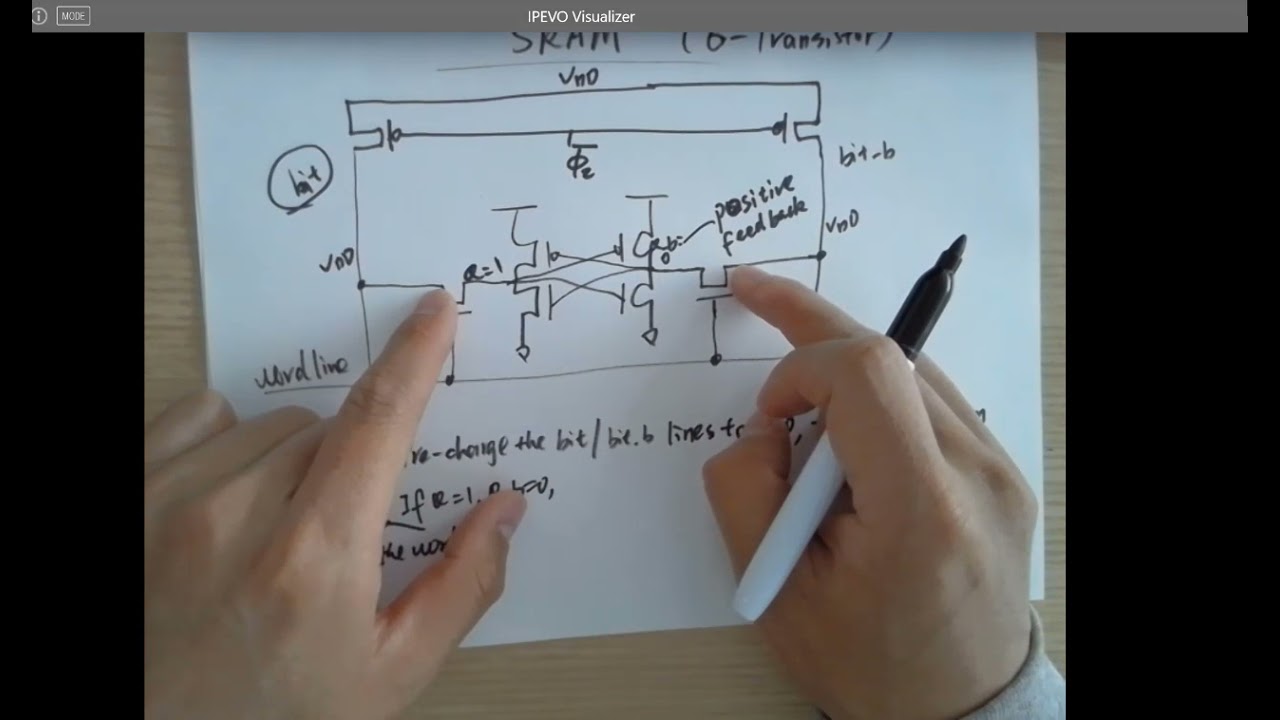 IPEVO Visualizer
MODE
SRAM (6-Transistor)
VDD
Φ2
bit
bit-b
positive
feedback
VDD
VDD
Q=1
Qb=
0
wordline
re-charge the bit/bit.b lines
If Q=1, =0,
the